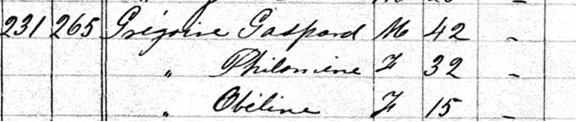 231 265 Grégoire Gaspard M 42 -
" Philomine F 32 -
" Obéline F 15 -